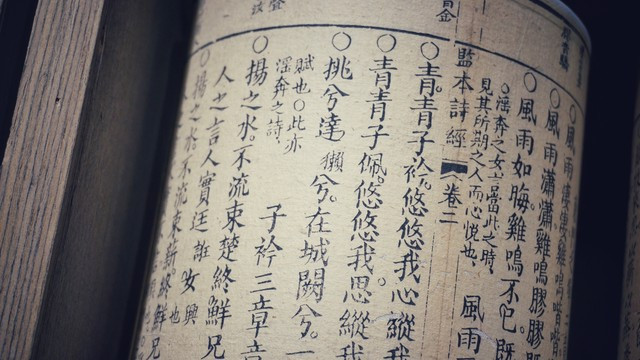 風雨
○風雨瀟瀟雞鳴膠膠
○風雨如晦雞鳴不已既
○淫奔之女言當此之時
見其所期之人而心悅也
風雨
監本詩經
卷二
○青青子衿悠悠我心縱
○青青子佩悠悠我思縱我
○挑兮達兮在城闕兮一
賦也○此亦
淫奔之詩
子衿三章章
○揚之水不流束楚終鮮兄
人之言人實廷誑女
興
也
○揚之水不流束薪終鮮兄